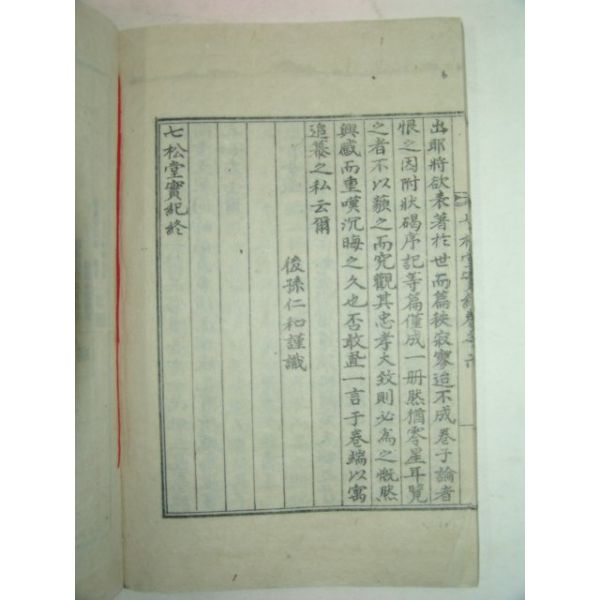 出耶將欲表著於世而篇秩寂寥迨不成卷子論者
恨之因附狀碣序記等篇僅成一册然猶零星耳覽
之者不以藐之而究觀其忠孝大致則必爲之慨然
興感而重嘆沉晦之久也否敢寘一言于卷端以寓
追慕之私云爾
後孫仁和謹識
七松堂實記終